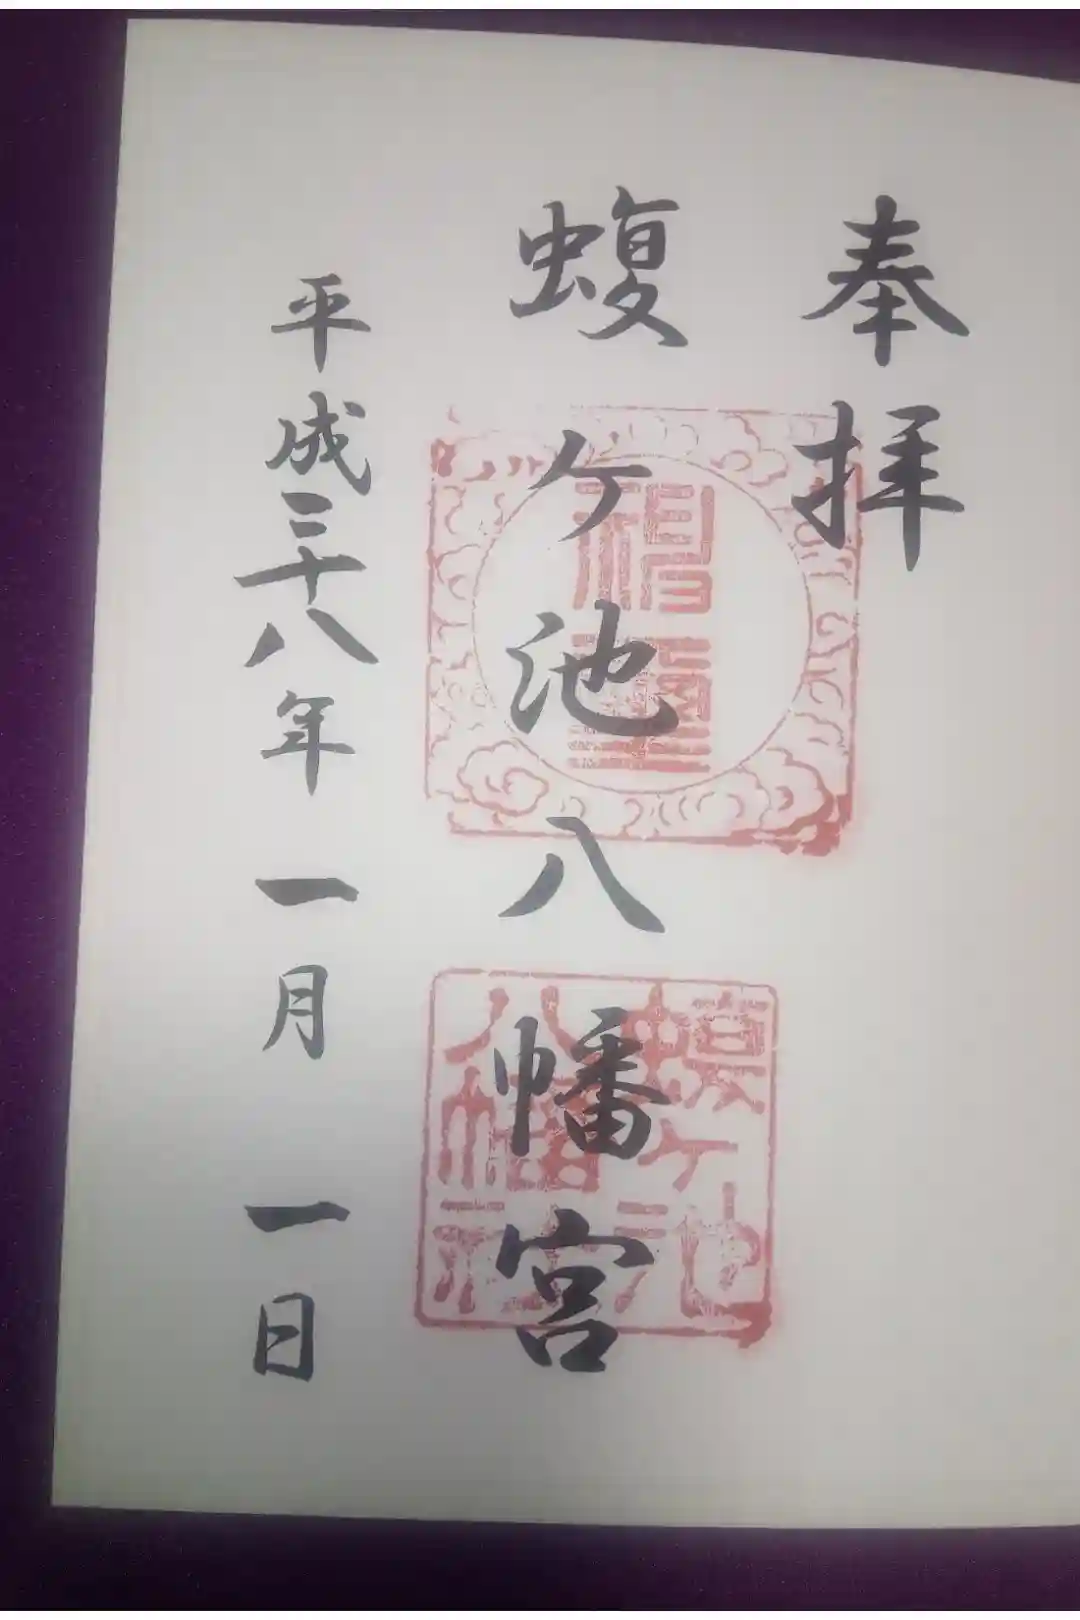 奉拝
蝮ケ池八幡宮
平成二十八年 一月 一日
蝮ケ池
八幡